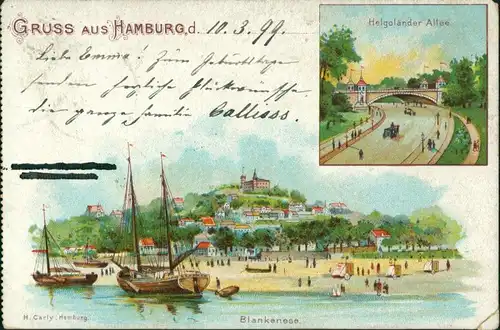 GRUSS AUS HAMBURG, d. 10.3.99.
Liebe Emma! Zum Geburtstage
senden herzliche Glückwünsche
die ganze Familie Callisos
Helgoländer Allee.
H. Carly, Hamburg.
Blankenese.